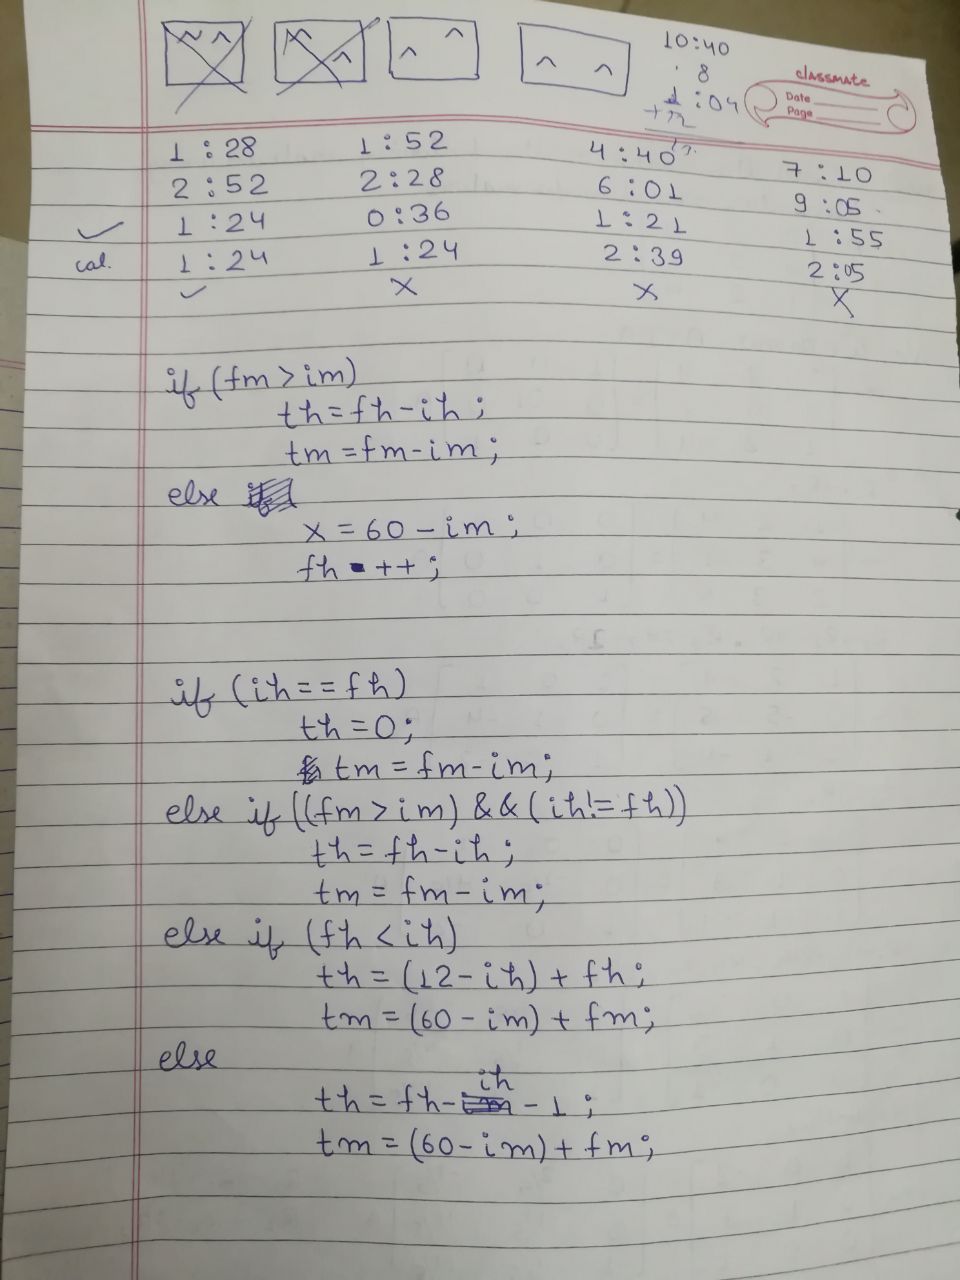 10:40
8
1:04
+12
classmate
Date
Page
1:28 1:52 4:40 7:10
2:52 2:28 6:01 9:05
✓ 1:24 0:36 1:21 1:55
cal. 1:24 1:24 2:39 2:05
✓ X X X
if (fm > im)
th = fh - ih ;
tm = fm - im ;
else
x = 60 - im ;
fh ++ ;
if (ih == fh)
th = 0;
tm = fm - im;
else if ((fm > im) && (ih != fh))
th = fh - ih ;
tm = fm - im;
else if (fh < ih)
th = (12 - ih) + fh ;
tm = (60 - im) + fm;
else
th = fh - ih - 1 ;
tm = (60 - im) + fm;